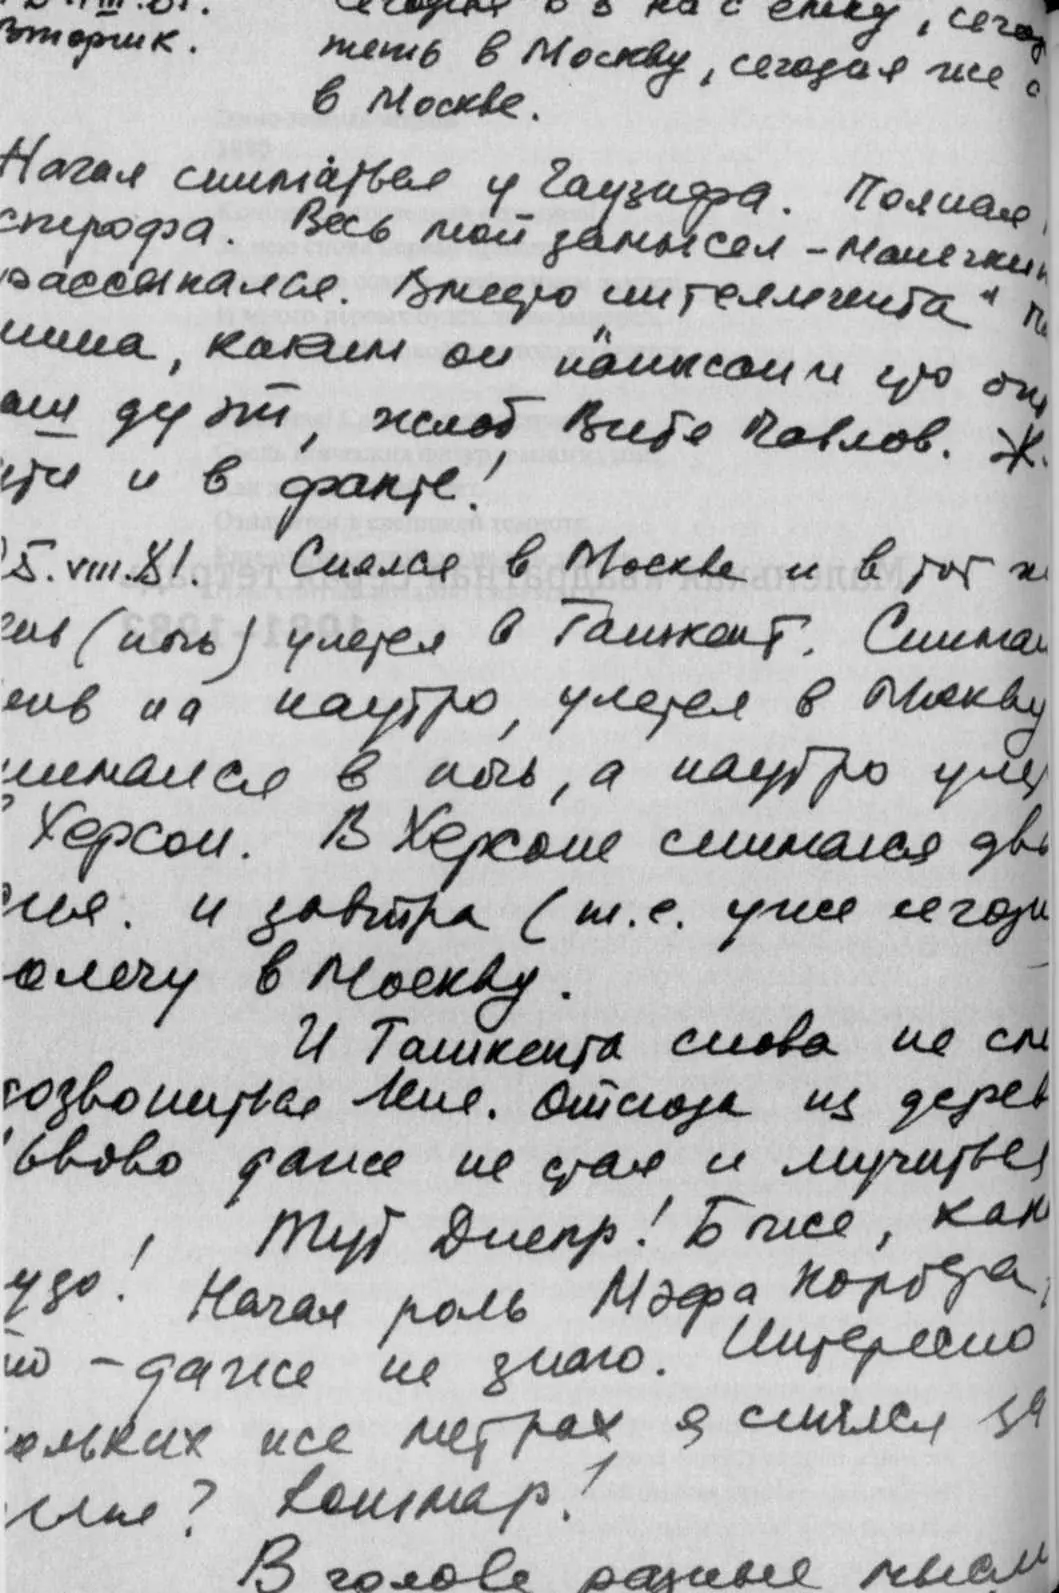 Вторник.
теть в Москву, сегодня же
в Москве.
Начал сниматься у Гаузнера. Полная
Весь мой замысел – Манечкин
рассыпался. Вместо интеллигента
каким он написан и
дует, жлоб Витя Павлов. Ж.
и в факте!
5.VIII.81. Снялся в Москве и в тот ж
(ночь) улетел в Ташкент. Снимал
на наутро, улетел в Москву
нимался в ночь, а наутро уле
Херсон. В Херсоне снимался два
дня. и завтра (т.е. уже сегодн
олечу в Москву.
И Ташкента снова не см
созвониться Лене. Отсюда из дерев
Львово даже не стал и мучиться
Тут Днепр! Боже, как
удо! Начал роль Мэфа
– даже не знаю. Интересно
ольких же метрах я снялся за
? Кошмар!
В голове разные мысли